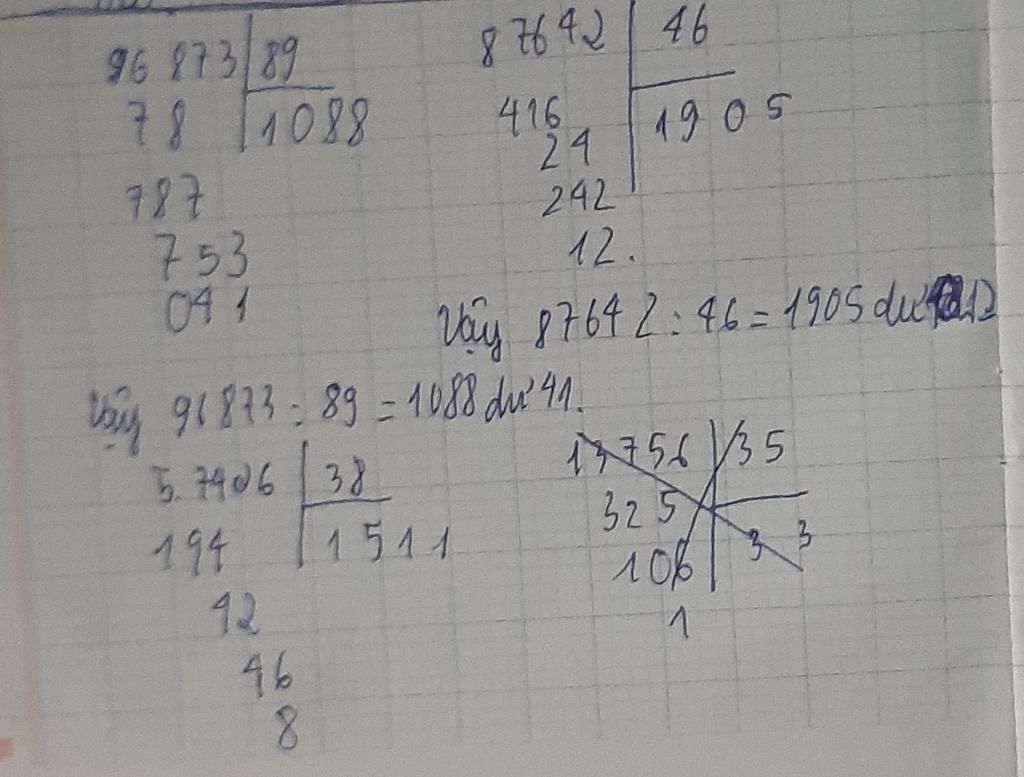 96873 89
78 1088
787
753
041
87642 46
416 1905
24
242
12.
Vậy 87642 : 46 = 1905 dư 12
Vậy 96873 : 89 = 1088 dư 41.
57406 38
194 1511
42
46
8
13756 35
325 33
106
1